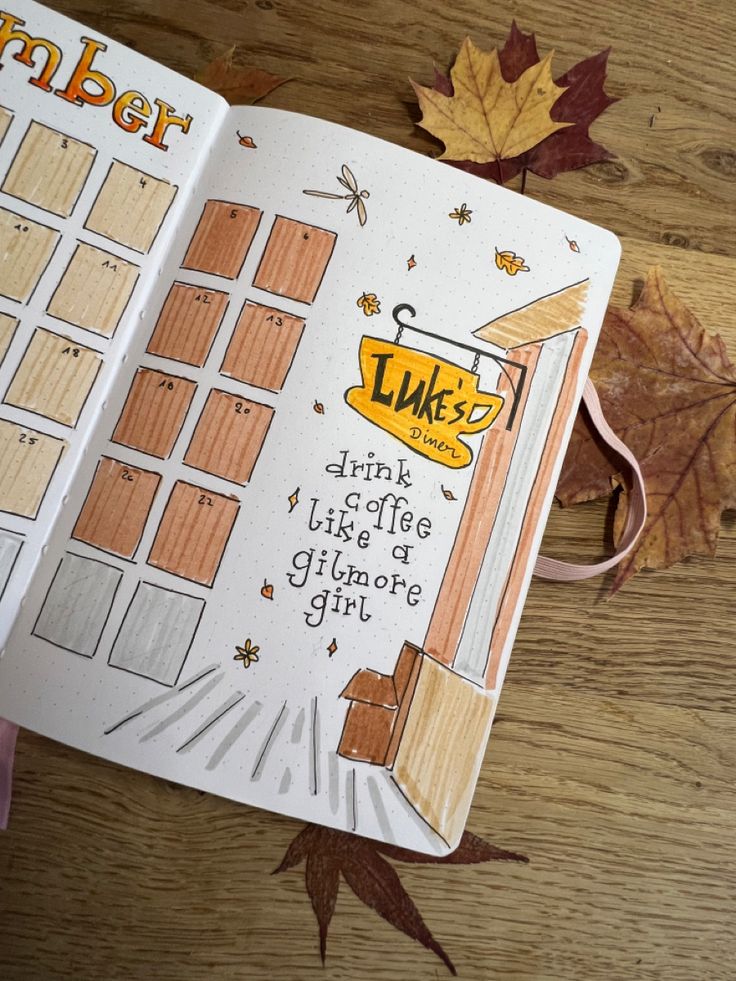 mber
3 4
10 11
18
25
5 6
12 13
19 20
26 27
Luke's
Diner
drink
coffee
like a
gilmore
girl